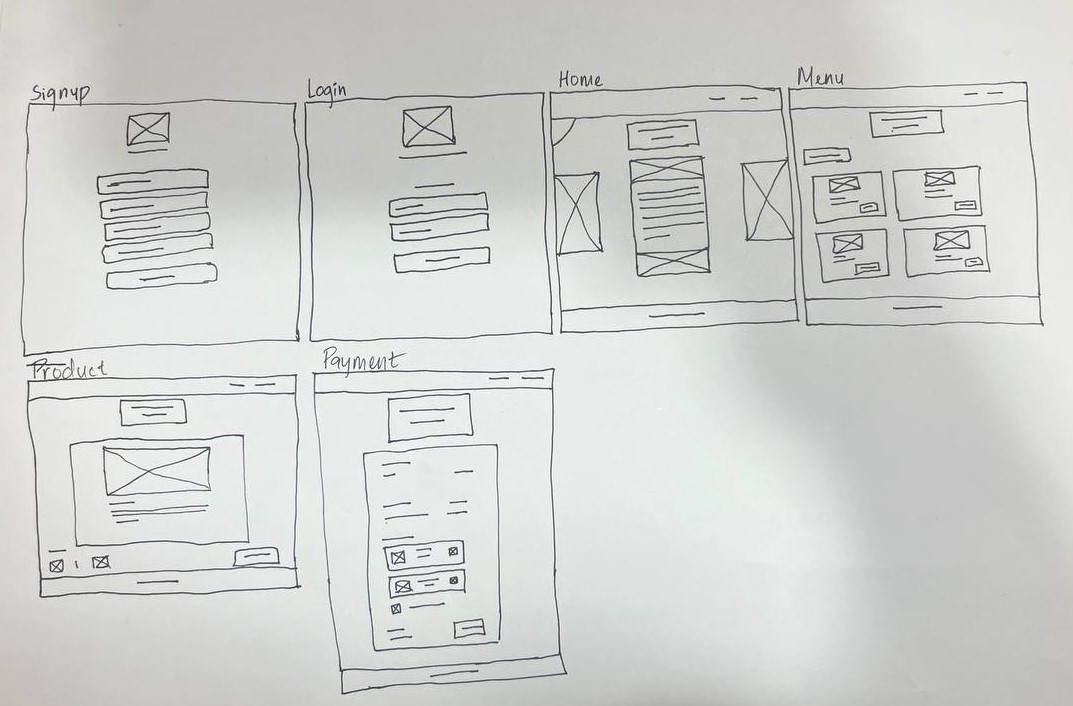 Signup
Login
Home
Menu
Product
Payment